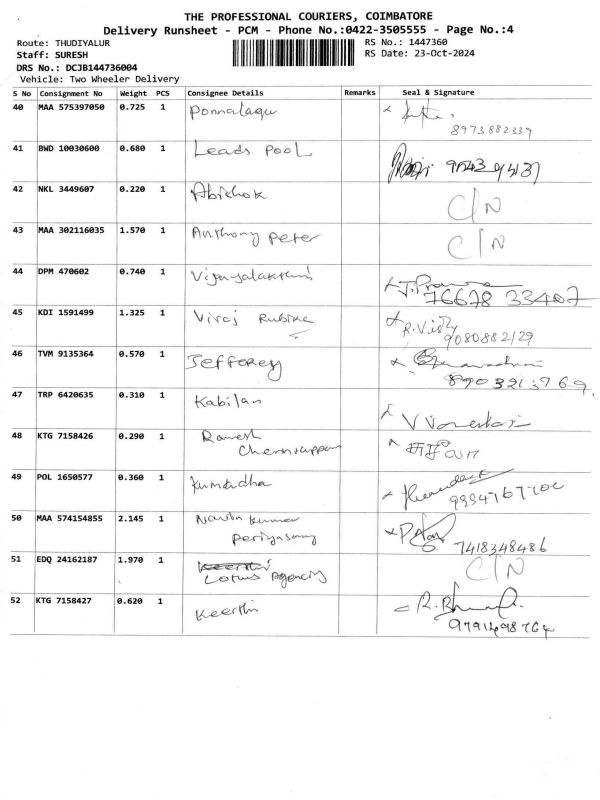 THE PROFESSIONAL COURIERS, COIMBATORE
Delivery Runsheet - PCM - Phone No.:0422-3505555 - Page No.:4
Route: THUDIYALUR RS No.: 1447360
Staff: SURESH RS Date: 23-Oct-2024
DRS No.: DCJB144736004
Vehicle: Two Wheeler Delivery
S No Consignment No Weight PCS Consignee Details Remarks Seal & Signature
40 MAA 575397050 0.725 1 Ponnalagu
8973882339
41 BWD 10030600 0.680 1 Leads Pool
42 NKL 3449607 0.220 1 Abishok C/N
43 MAA 302116035 1.570 1 Anthony Peter C/N
44 DPM 470602 0.740 1 Vijayalakshmi
76678 33407
45 KDI 1591499 1.325 1 Viraj Rubika
9080882129
46 TVM 9135364 0.570 1 Jefferey
47 TRP 6420635 0.310 1 Kabilan
48 KTG 7158426 0.290 1 Ramesh
49 POL 1650577 0.360 1 Kumudha
50 MAA 574154855 2.145 1 Navin Kumar
Periyasamy 7418348486
51 EDQ 24162187 1.970 1 Keerthi
Lotus Agency C/N
52 KTG 7158427 0.620 1 Keerthi
9791498764